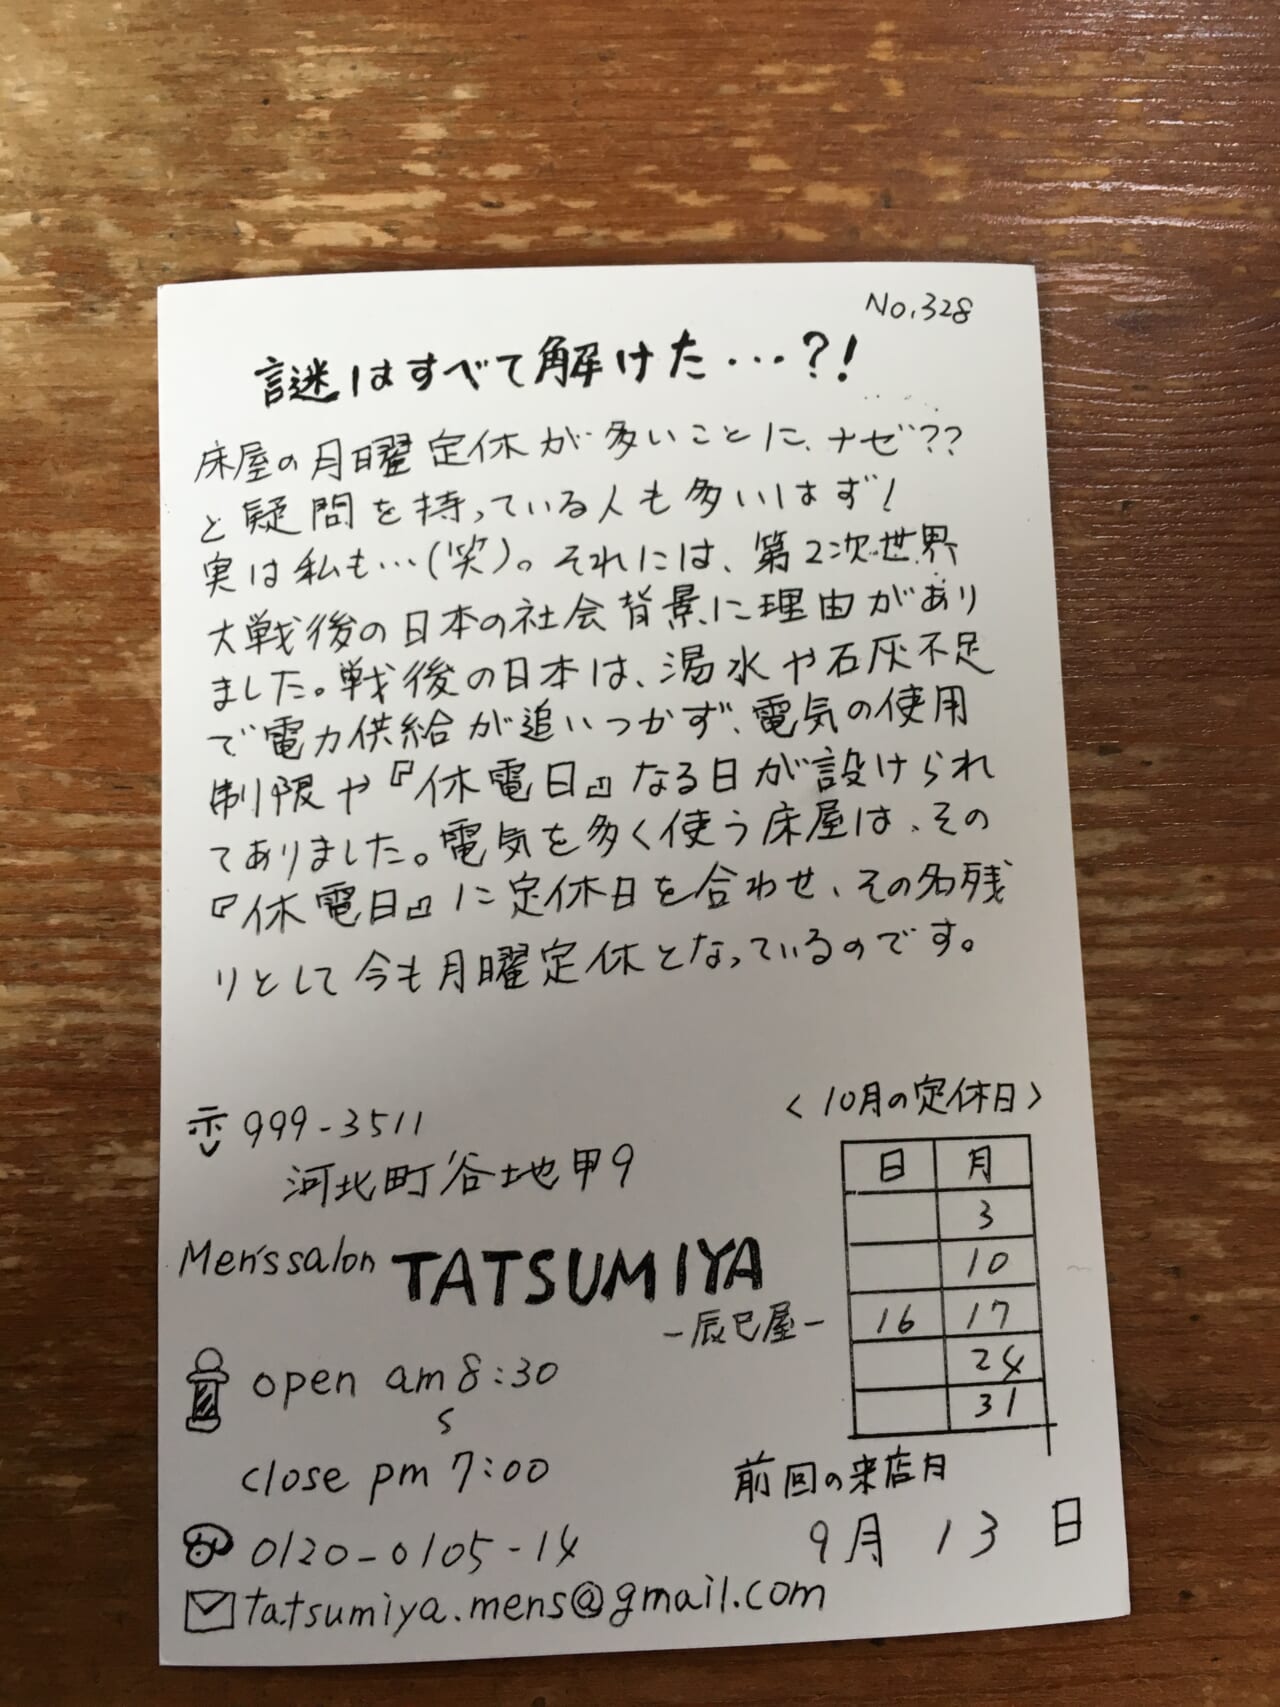 No.328
謎はすべて解けた…?!
床屋の月曜定休が多いことに、ナゼ??
と疑問を持っている人も多いはず!
実は私も…(笑)。それには、第2次世界
大戦後の日本の社会背景に理由があり
ました。戦後の日本は、渇水や石灰不足
で電力供給が追いつかず、電気の使用
制限や『休電日』なる日が設けられ
てありました。電気を多く使う床屋は、その
『休電日』に定休日を合わせ、その名残
りとして今も月曜定休となっているのです。
〒999-3511
河北町谷地甲9
Men's salon TATSUMIYA
-辰巳屋-
open am 8:30
~
close pm 7:00
0120-0105-14
tatsumiya.mens@gmail.com
<10月の定休日>
日 月
3
10
16 17
24
31
前回の来店月
9月 13 日